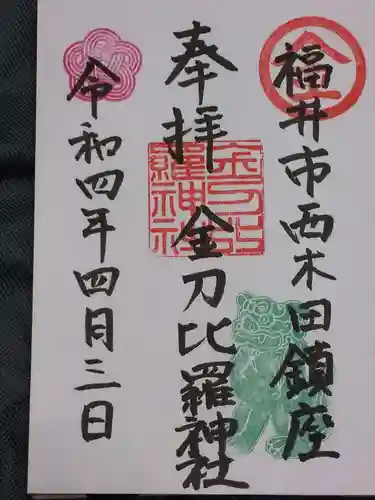 福井市西木田鎮座
奉拝 金刀比羅神社
令和四年四月三日
金
金刀比
羅神社